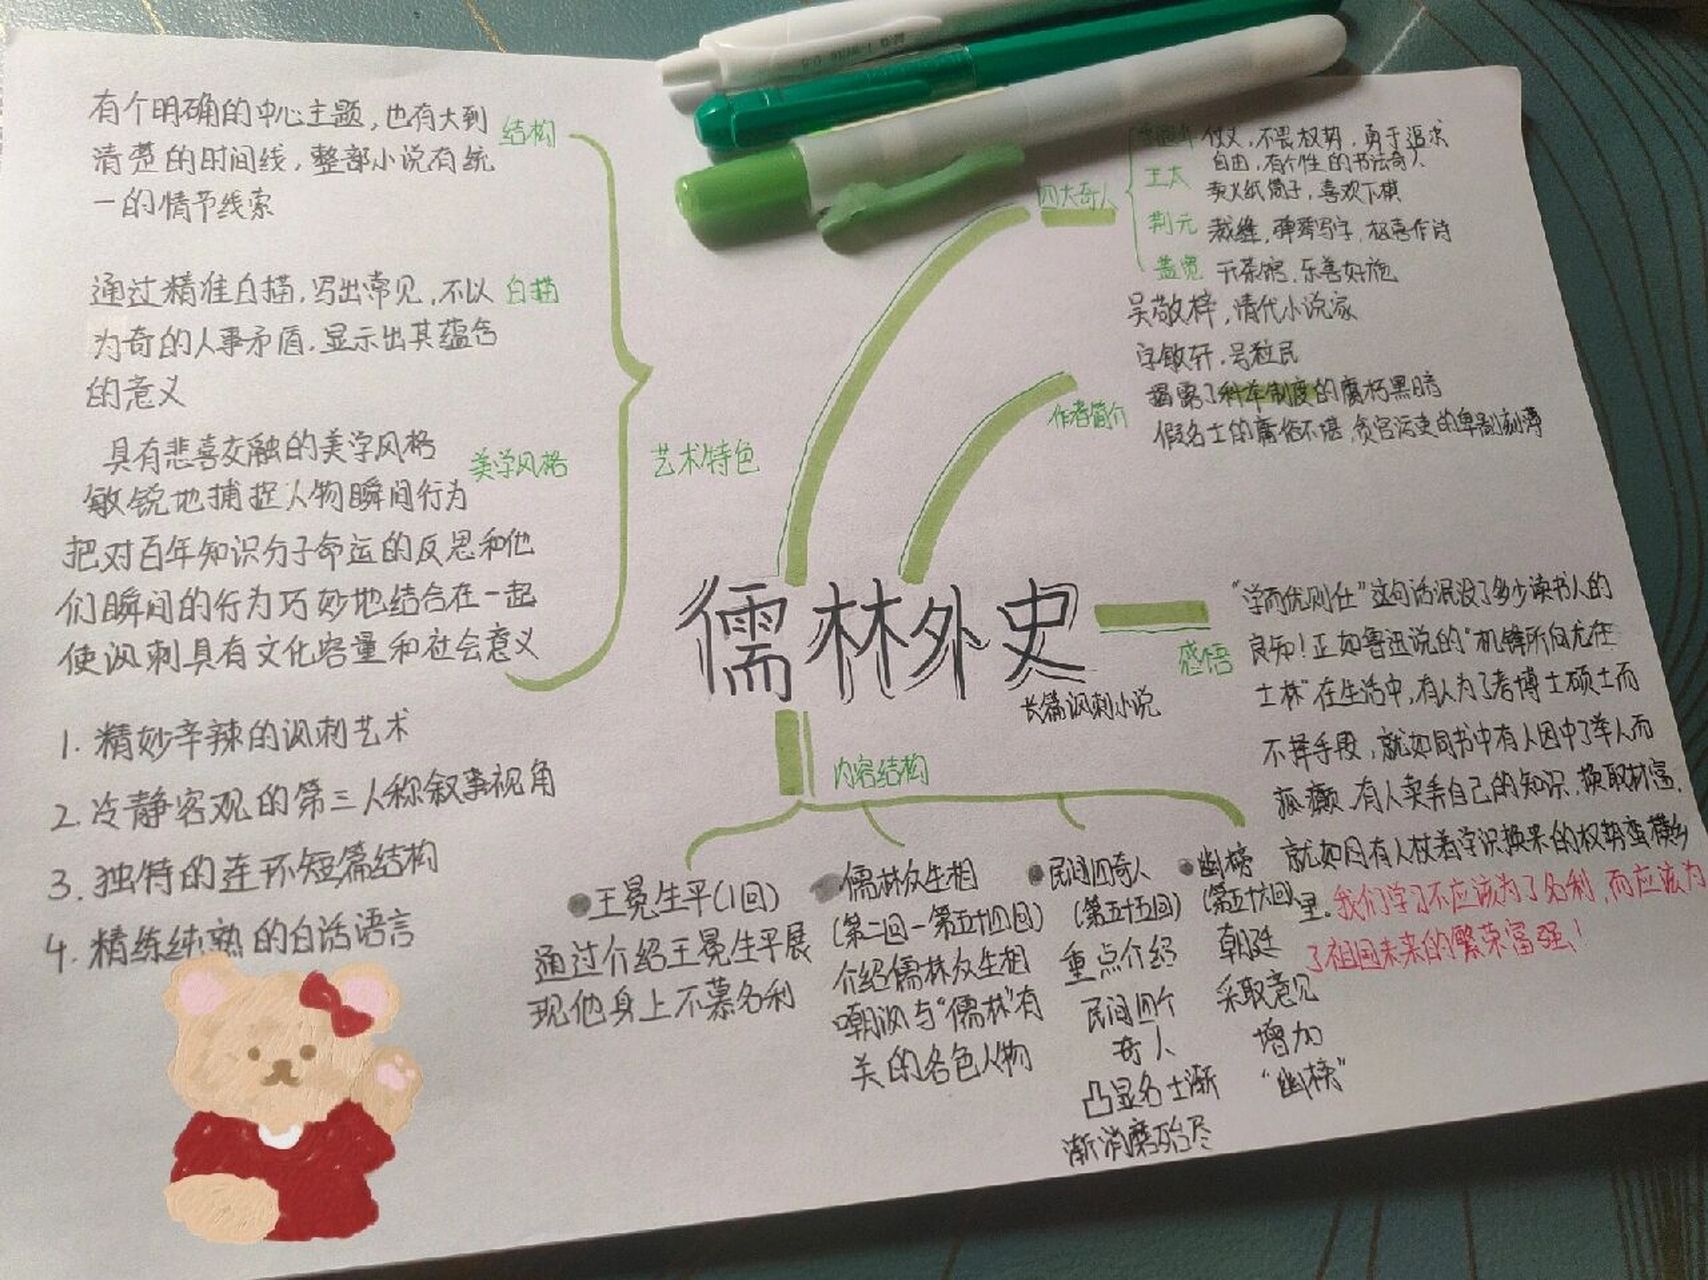 有个明确的中心主题，也有大到
清楚的时间线，整部小说有统
一的情节线索
结构
通过精准白描，写出常见，不以
为奇的人事矛盾，显示出其蕴含
的意义
白描
具有悲喜交融的美学风格
敏锐地捕捉人物瞬间行为
把对百年知识分子命运的反思和他
们瞬间的行为巧妙地结合在一起
使讽刺具有文化容量和社会意义
美学风格
艺术特色
1. 精妙辛辣的讽刺艺术
2. 冷静客观的第三人称叙事视角
3. 独特的连环短篇结构
4. 精练纯熟的白话语言
四大奇人
仗义，不畏权势，勇于追求
自由，有个性的书法奇人
王太
卖火纸筒子，喜欢下棋
荆元 裁缝，弹琴写字，极喜作诗
盖宽 开茶馆，乐善好施
作者简介
吴敬梓，清代小说家
字敏轩，号粒民
揭露了科举制度的腐朽黑暗
假名士的庸俗不堪，贪官污吏的卑鄙刻薄
儒林外史
长篇讽刺小说
感悟
“学而优则仕”这句话泯没了多少读书人的
良知！正如鲁迅说的“机锋所向尤在
士林”在生活中，有人为了考博士硕士而
不择手段，就如同书中有人因中了举人而
疯癫，有人卖弄自己的知识，换取财富，
就如同有人仗着学识换来的权势蛮横乡
里。我们学习不应该为了名利，而应该为
了祖国未来的繁荣富强！
内容结构
王冕生平(1回)
通过介绍王冕生平展
现他身上不慕名利
儒林众生相
(第二回-第五十四回)
介绍儒林众生相
嘲讽与“儒林”有
关的各色人物
民间四奇人
(第五十五回)
重点介绍
民间四个
奇人
凸显名士渐
渐消磨殆尽
幽榜
(第五十六回)
朝廷
采取意见
增加
“幽榜”